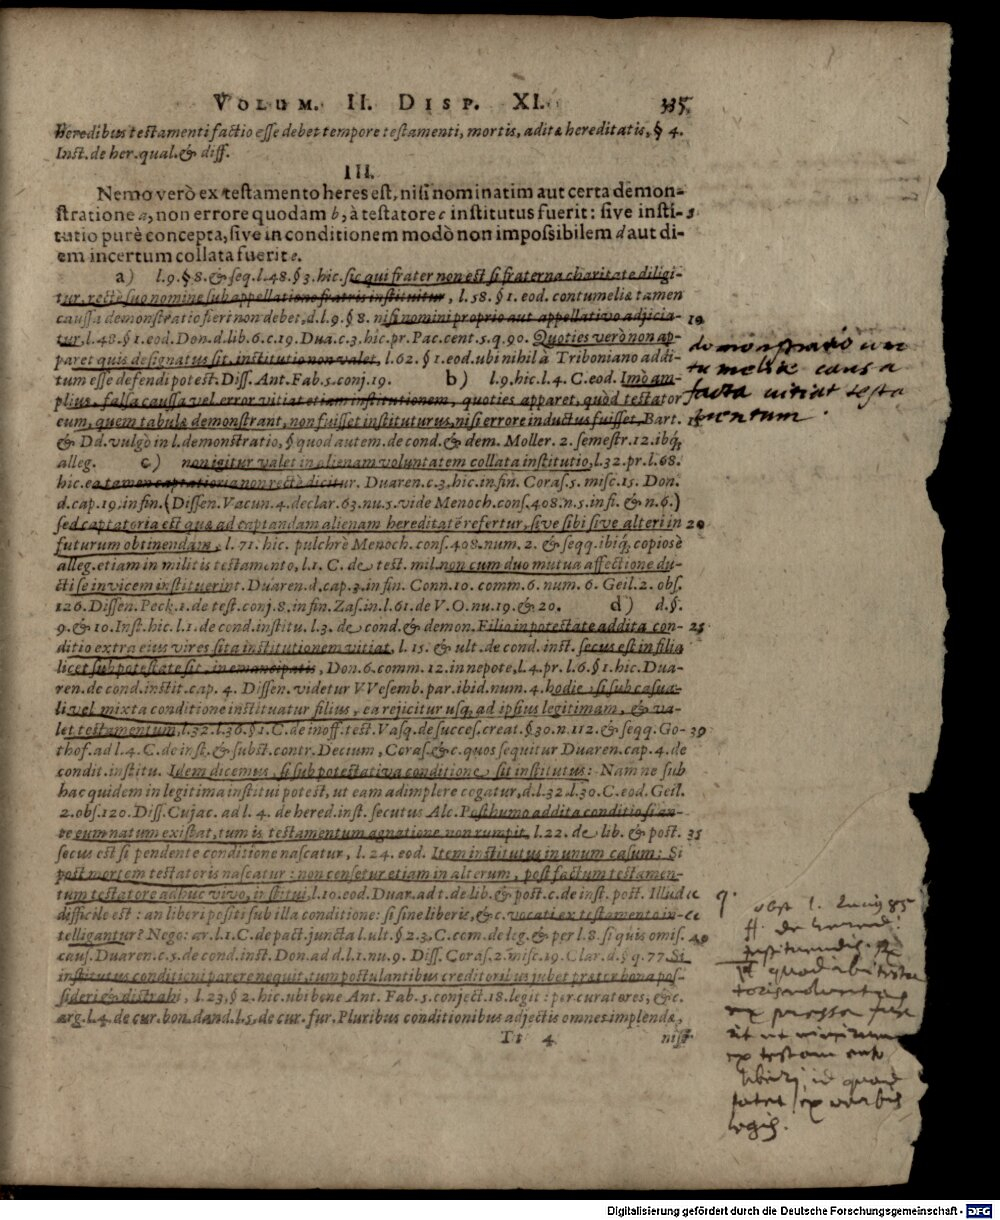 VOLUM. II. DISP. XI. 335
Heredibus testamenti factio esse debet tempore testamenti, mortis, aditæ hereditatis, § 4.
Inst. de her. qual. & diff.
III.
Nemo verò ex testamento heres est, nisi nominatim aut certa demon-
stratione a, non errore quodam b, à testatore c institutus fuerit: sive insti- 5
tutio purè concepta, sive in conditionem modò non impossibilem d aut di-
em incertum collata fuerit e.
a) l. 9. §. 8. & seq. l. 48. § 3. hic. sic qui frater non est si fraterna charitate diligi-
tur, rectè suo nomine sub appellatione fratris instituitur, l. 58. § 1. eod. contumeliæ tamen
caussa demonstratio fieri non debet, d. l. 9. § 8. nisi nomini proprio aut appellativo adjicia- 10
tur, l. 48. § 1. eod. Don. d. lib. 6. c. 19. Dua. c. 3. hic. pr. Pac. cent. 5. q. 90. Quoties verò non ap-
paret quis designatus sit, institutio non valet, l. 62. § 1. eod. ubi nihil à Triboniano addi-
tum esse defendi potest. Diss. Ant. Fab. 5. conj. 19. b) l. 9. hic. l. 4. C. eod. Imò am-
plius, falsa caussa vel error vitiat etiam institutionem, quoties apparet, quòd testator
eum, quem tabulæ demonstrant, non fuisset instituturus, nisi errore inductus fuisset, Bart. 15
& Dd. vulgò in l. demonstratio, § quod autem. de cond. & dem. Moller. 2. semestr. 12. ibq́;
alleg. c) non igitur valet in alienam voluntatem collata institutio, l. 32. pr. l. 68.
hic. ea tamen captatoria non rectè dicitur. Duaren. c. 3. hic. in fin. Coras. 5. misc. 15. Don.
d. cap. 19. in fin. (Dissen. Vacun. 4. declar. 63. nu. 5. vide Menoch. cons. 408. n. 5. infi. & n. 6.)
sed captatoria est quæ ad captandam alienam hereditatē refertur, sive sibi sive alteri in 20
futurum obtinendam, l. 71. hic. pulchrè Menoch. cons. 408. num. 2. & seqq. ibiq́; copiosè
alleg. etiam in militis testamento, l. 1. C. de test. mil. non cum duo mutua affectione du-
cti se invicem instituerint. Duaren. d. cap. 3. in fin. Conn. 10. comm. 6. num. 6. Geil. 2. obs.
126. Dissen. Peck. 1. de test. conj. 8. in fin. Zas. in l. 61. de V. O. nu. 19. & 20. d) d. §.
9. & 10. Inst. hic. l. 1. de cond. institu. l. 3. de cond. & demon. Filio in potestate addita con- 25
ditio extra ejus vires sita institutionem vitiat, l. 15. & ult. de cond. inst. secus est in filia
licet sub potestate sit, in emancipatis, Don. 6. comm. 12. in nepote, l. 4. pr. l. 6. § 1. hic. Dua-
ren. de cond. instit. cap. 4. Dissen. videtur VVesemb. par. ibid. num. 4. hodie, si sub casua-
li vel mixta conditione instituatur filius, ea rejicitur usq; ad ipsius legitimam, & va-
let testamentum, l. 32. l. 36. § 1. C. de inoff. test. Vasq. de succes. creat. § 30. n. 112. & seqq. Go- 30
thof. ad l. 4. C. de inst. & subst. contr. Decium, Coras. &c. quos sequitur Duaren. cap. 4. de
condit. institu. Idem dicemus, si sub potestativa conditione sit institutus: Nam ne sub
hac quidem in legitima institui potest, ut eam adimplere cogatur, d. l. 32. l. 30. C. eod. Geil.
2. obs. 120. Diss. Cujac. ad l. 4. de hered. inst. secutus Alc. Posthumo addita conditio si an-
te eum natum existat, tum is testamentum agnatione non rumpit, l. 22. de lib. & post. 35
secus est si pendente conditione nascatur, l. 24. eod. Item institutus in unum casum: Si
post mortem testatoris nascatur: non censetur etiam in alterum, post factum testamen-
tum testatore adhuc vivo, institui, l. 10. eod. Duar. ad t. de lib. & post. c. de inst. post. Illud
difficile est: an liberi positi sub illa conditione: si sine liberis, &c. vocati ex testamento in-
telligantur? Nego: ar. l. 1. C. de pact. juncta l. ult. § 2. 3. C. com. de leg. & per l. 8. si quis omis. 40
caus. Duaren. c. 5. de cond. inst. Don. ad d. l. 1. nu. 9. Diss. Coras. 2. misc. 19. Clar. d. § q. 77. Si
institutus conditioni parere nequit, tum postulantibus creditoribus jubet prætor bona pos-
sideri & distrahi, l. 23, § 2. hic. ubi bene Ant. Fab. 5. conject. 18. legit: per curatores, &c.
arg. l. 4. de cur. bon. dand. l. 5. de cur. fur. Pluribus conditionibus adjectis omnes implendæ,
Tt 4 nisi
demonstratio con
tumeliæ causa
facta vitiat testa
mentum.
obst l. 85
ff. de hered:
instituendis.
quod ibi testa
toris voluntas
expressa fue
rit ut
ex testamento
liberi, id quod
patet ex verbis
legis.
Digitalisierung gefördert durch die Deutsche Forschungsgemeinschaft - DFG